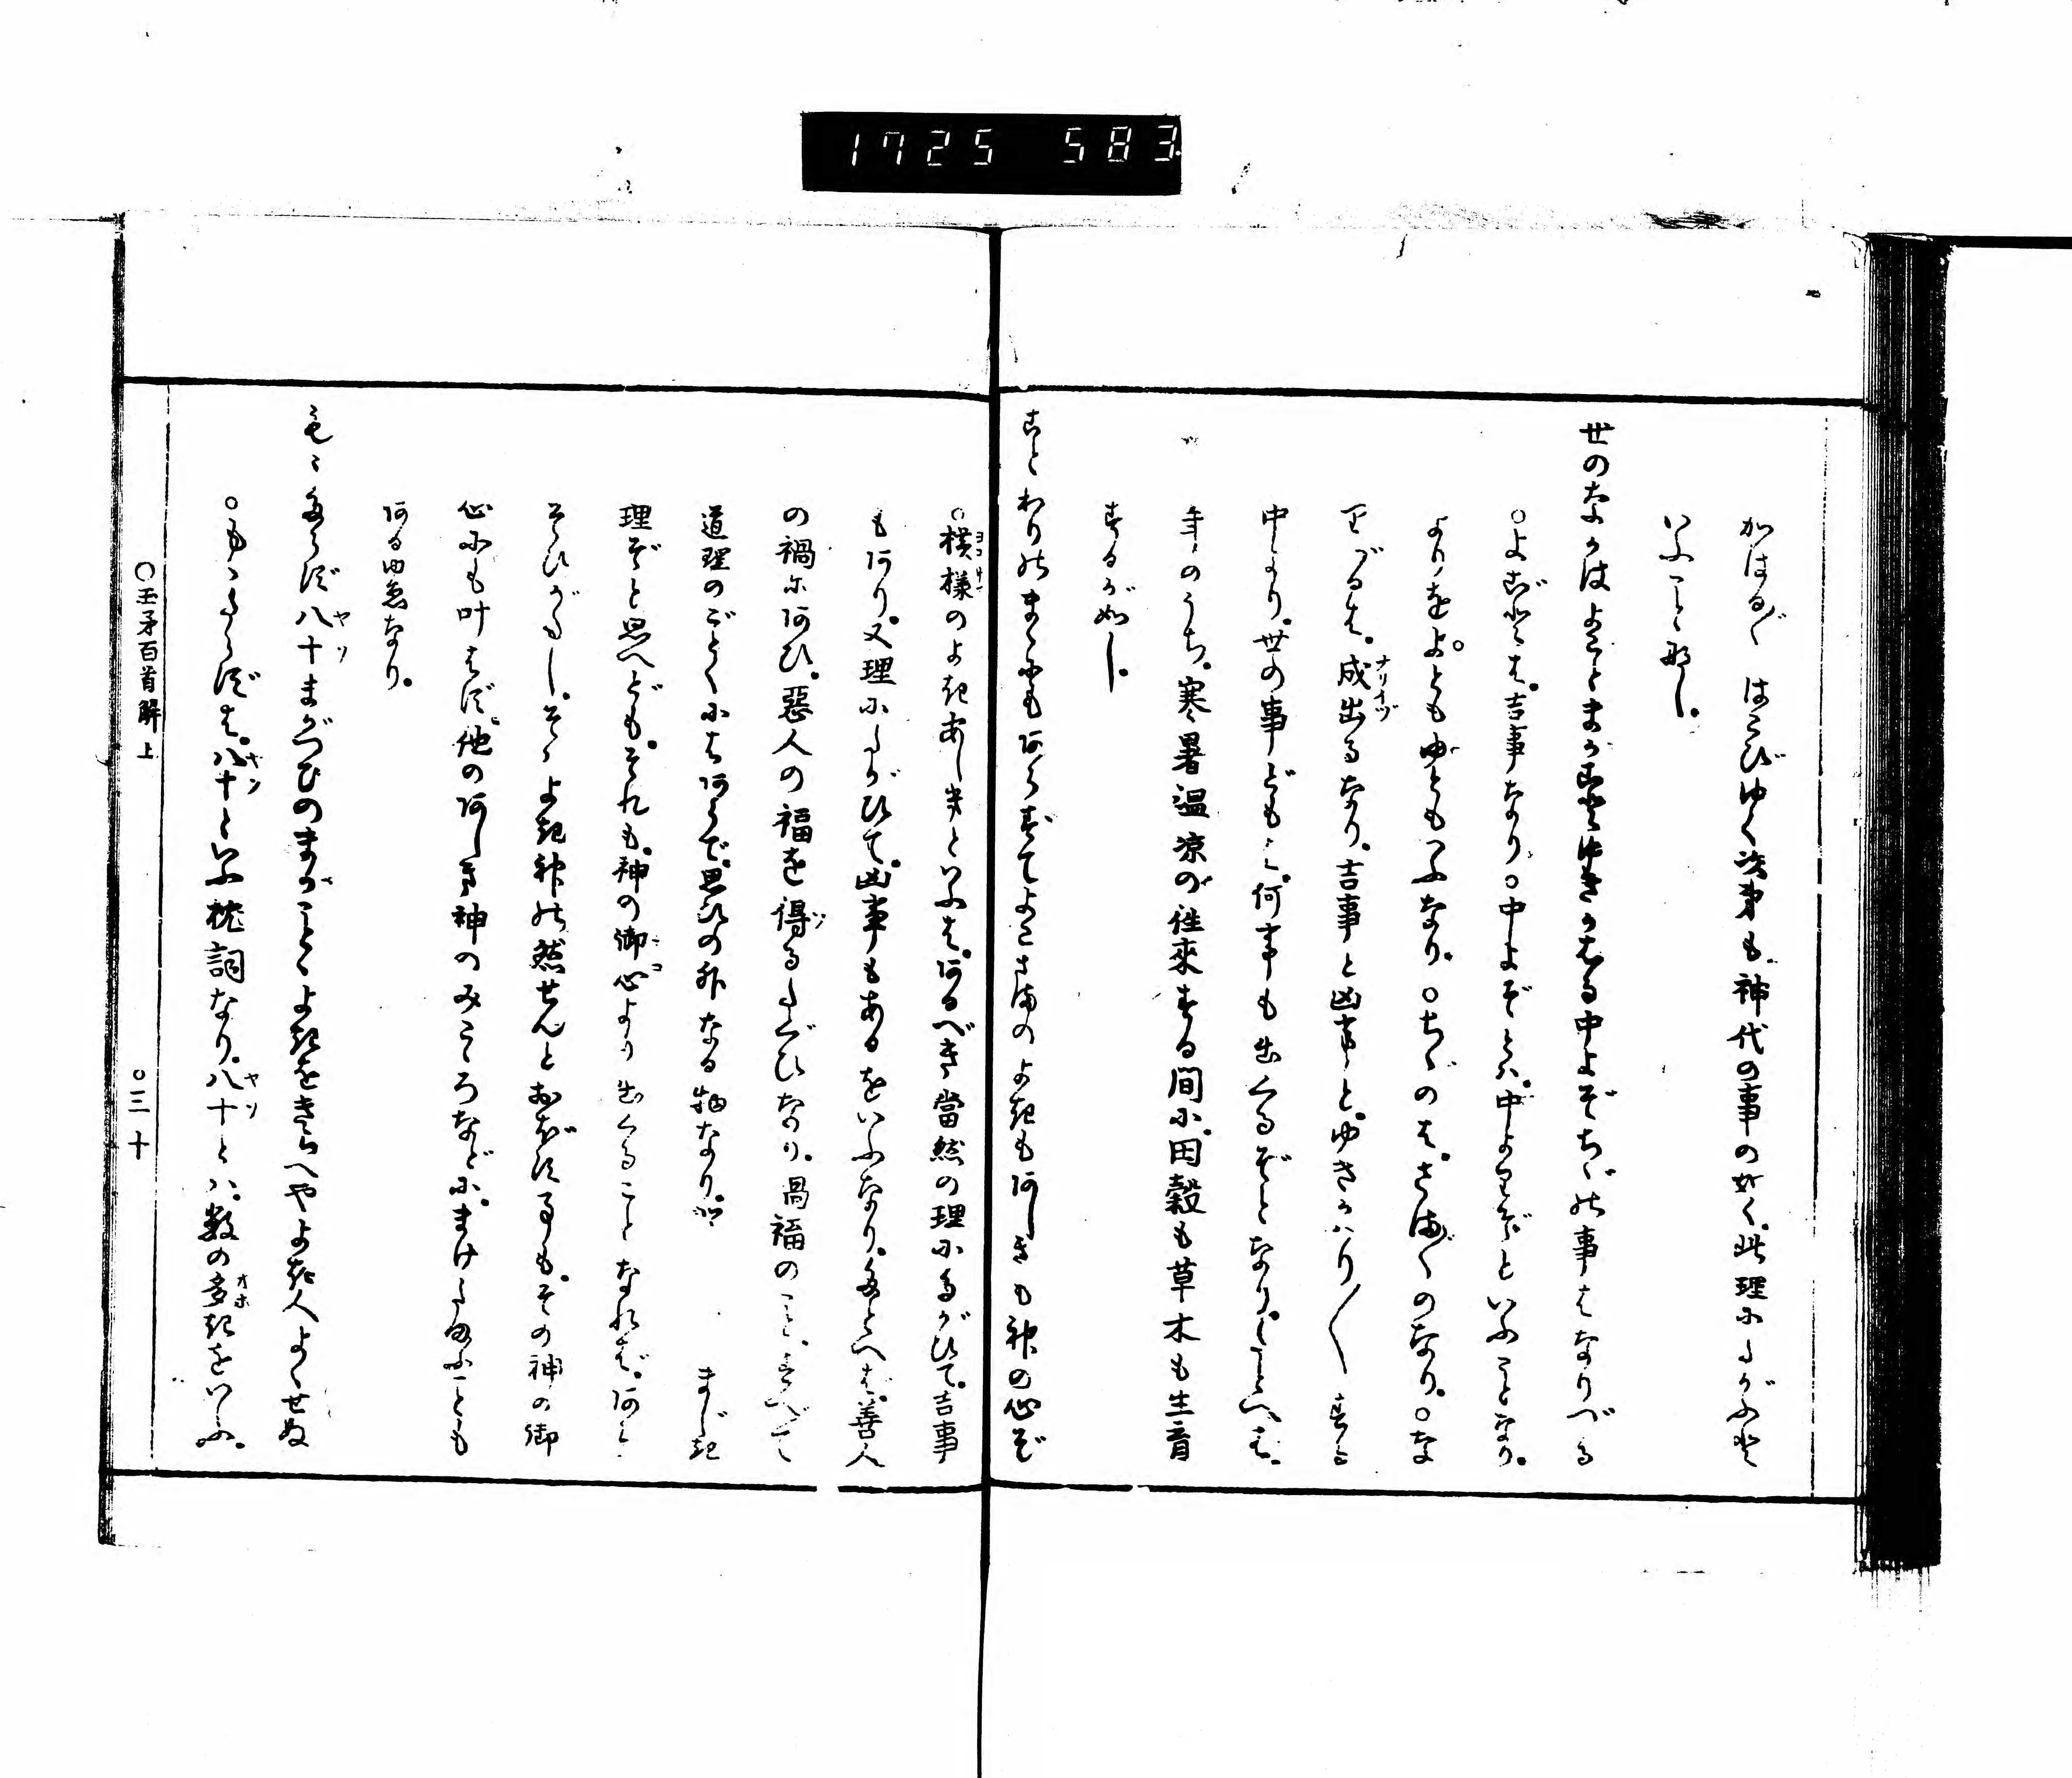 1725 583
かはる〴〵はこびゆく次第も。神代の事の如く。此理にたがふ事
いふこと那し。
世のなかはよごとまがことゆきかはる中よぞちゞの事はなりづる
○よごとは。吉事なり。○中よぞとハ。中よりぞといふことなり。
よりをよ。ともゆともいふなり。○ちゞのは。さま〴〵のなり。○な
りづるは。成出るなり。吉事と凶事と。ゆきかハり〳〵する
中より。世の事どもは。何事も出くるぞとなり。たとへば。
年のうち。寒暑温凉の往來する間に。田穀も草木も生育
するが如し。
ことわりのまゝにもあらずてよこさまのよきもあしきも神の心ぞ
○横様のよきあしきといふは。あるべき當然の理にたがひて。吉事
もあり。又理にたがひて。凶事もあるをいふなり。たとへば。善人
の禍にあひ。惡人の福を得るたぐひなり。禍福のこと、すべて
道理のごとくにはあらで。思ひの外なる物なり。 まじき
理ぞと思へども。それも。神の御心より出くることなれば。あらそ
ひがたし。そはよき神の然せんとおぼす事も。その神の御
心にも叶はず。他のあしき神のみこゝろなどに。まけたまふことも
ある由ゑなり。
もゝたらず八十まがつびのまがことゝよきをきらへやよき人よくせぬ
○もゝたらずは。八十といふ枕詞なり。八十とハ。数の多きをいふ。
○玉矛百首解上
○三十